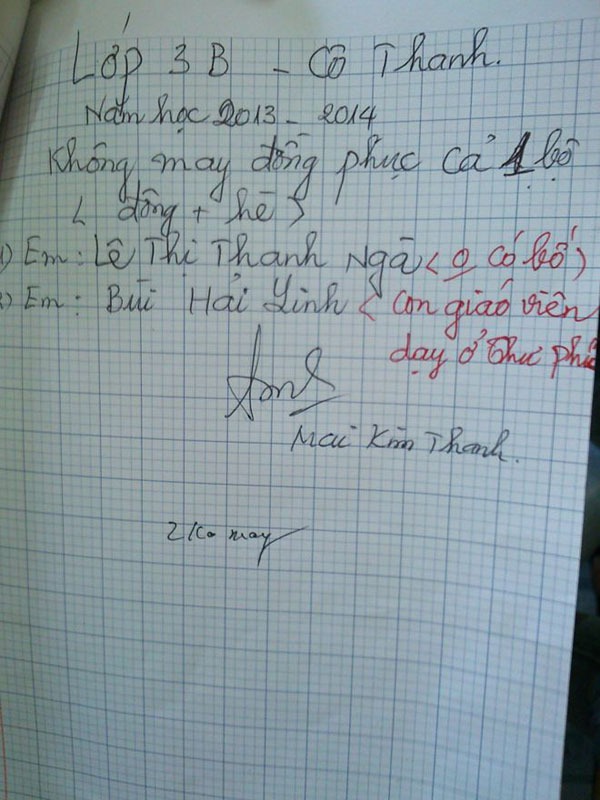 Lớp 3B - Cô Thanh.
Năm học 2013 - 2014
Không may đồng phục cả 1 bộ
( đông + hè )
1) Em: Lê Thị Thanh Ngà ( 0 có bố )
2) Em: Bùi Hải Linh ( Con giáo viên
dạy ở Thư phú
Mai Kim Thanh.
2 ko may